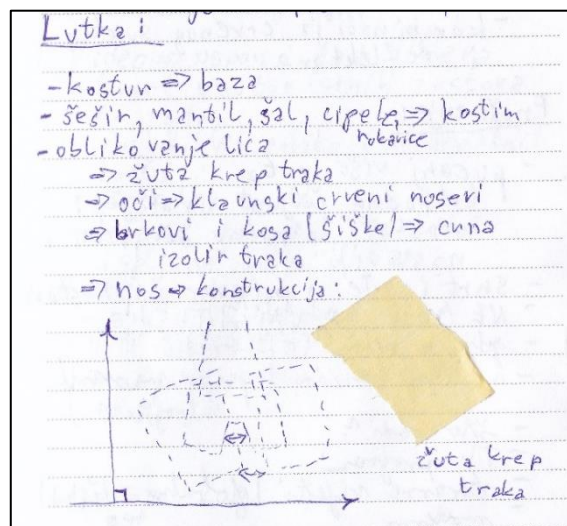 Lutka:
- kostur => baza
- šešir, mantil, šal, cipele, => kostim
rukavice
- oblikovanje lica
=> žuta krep traka
=> oči => klaunski crveni noseri
=> brkovi i kosa (šiške) => crna
izolir traka
=> nos => konstrukcija:
žuta krep
traka